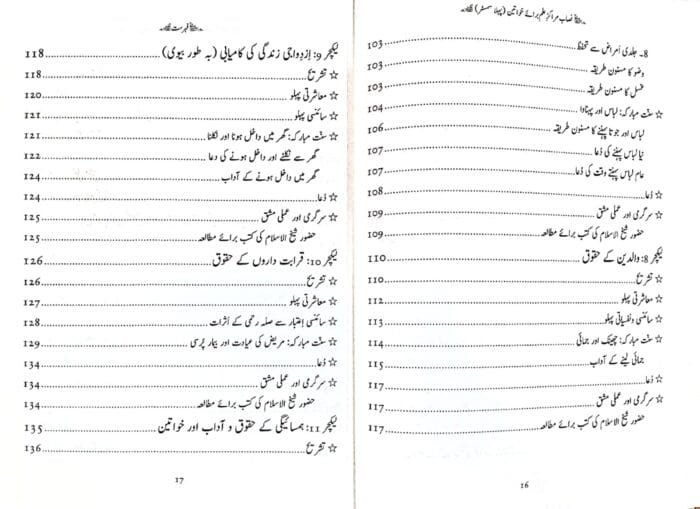 نصاب مراکزِ علم برائے خواتین (پہلا سمسٹر)
8۔ جلدی اَمراض سے تحفظ 103
وضو کا مسنون طریقہ 103
غسل کا مسنون طریقہ 103
☆ سنّت مبارکہ: لباس اور پہناوا 104
لباس اور جوتا پہننے کا مسنون طریقہ 106
نیا لباس پہننے کی دُعا 107
عام لباس پہنتے وقت کی دُعا 107
☆ دُعا 108
☆ سرگرمی اور عملی مشق 109
حضور شیخ الاسلام کی کتب برائے مطالعہ 109
لیکچر 8: والدین کے حقوق 110
☆ تشریح 110
☆ معاشرتی پہلو 112
☆ سائنسی ونفسیاتی پہلو 113
☆ سنّت مبارکہ: چھینک اور جمائی 114
جمائی لینے کے آداب 115
☆ دُعا 117
☆ سرگرمی اور عملی مشق 117
حضور شیخ الاسلام کی کتب برائے مطالعہ 117
16
فہرست
لیکچر 9: اِزدِواجی زندگی کی کامیابی (بہ طور بیوی) 118
☆ تشریح 118
☆ معاشرتی پہلو 120
☆ سائنسی پہلو 121
☆ سنّت مبارکہ: گھر میں داخل ہونا اور نکلنا 121
گھر سے نکلنے اور داخل ہونے کی دعا 122
گھر میں داخل ہونے کے آداب 124
☆ دُعا 124
☆ سرگرمی اور عملی مشق 125
حضور شیخ الاسلام کی کتب برائے مطالعہ 125
لیکچر 10: قرابت داروں کے حقوق 126
☆ تشریح 126
☆ معاشرتی پہلو 127
☆ سائنسی اِعتبار سے صلہ رحمی کے اَثرات 128
☆ سنّت مبارکہ: مریض کی عیادت اور بیمار پُرسی 129
☆ دُعا 134
☆ سرگرمی اور عملی مشق 134
حضور شیخ الاسلام کی کتب برائے مطالعہ 134
لیکچر 11: ہمسائیگی کے حقوق و آداب اور خواتین 135
☆ تشریح 136
17